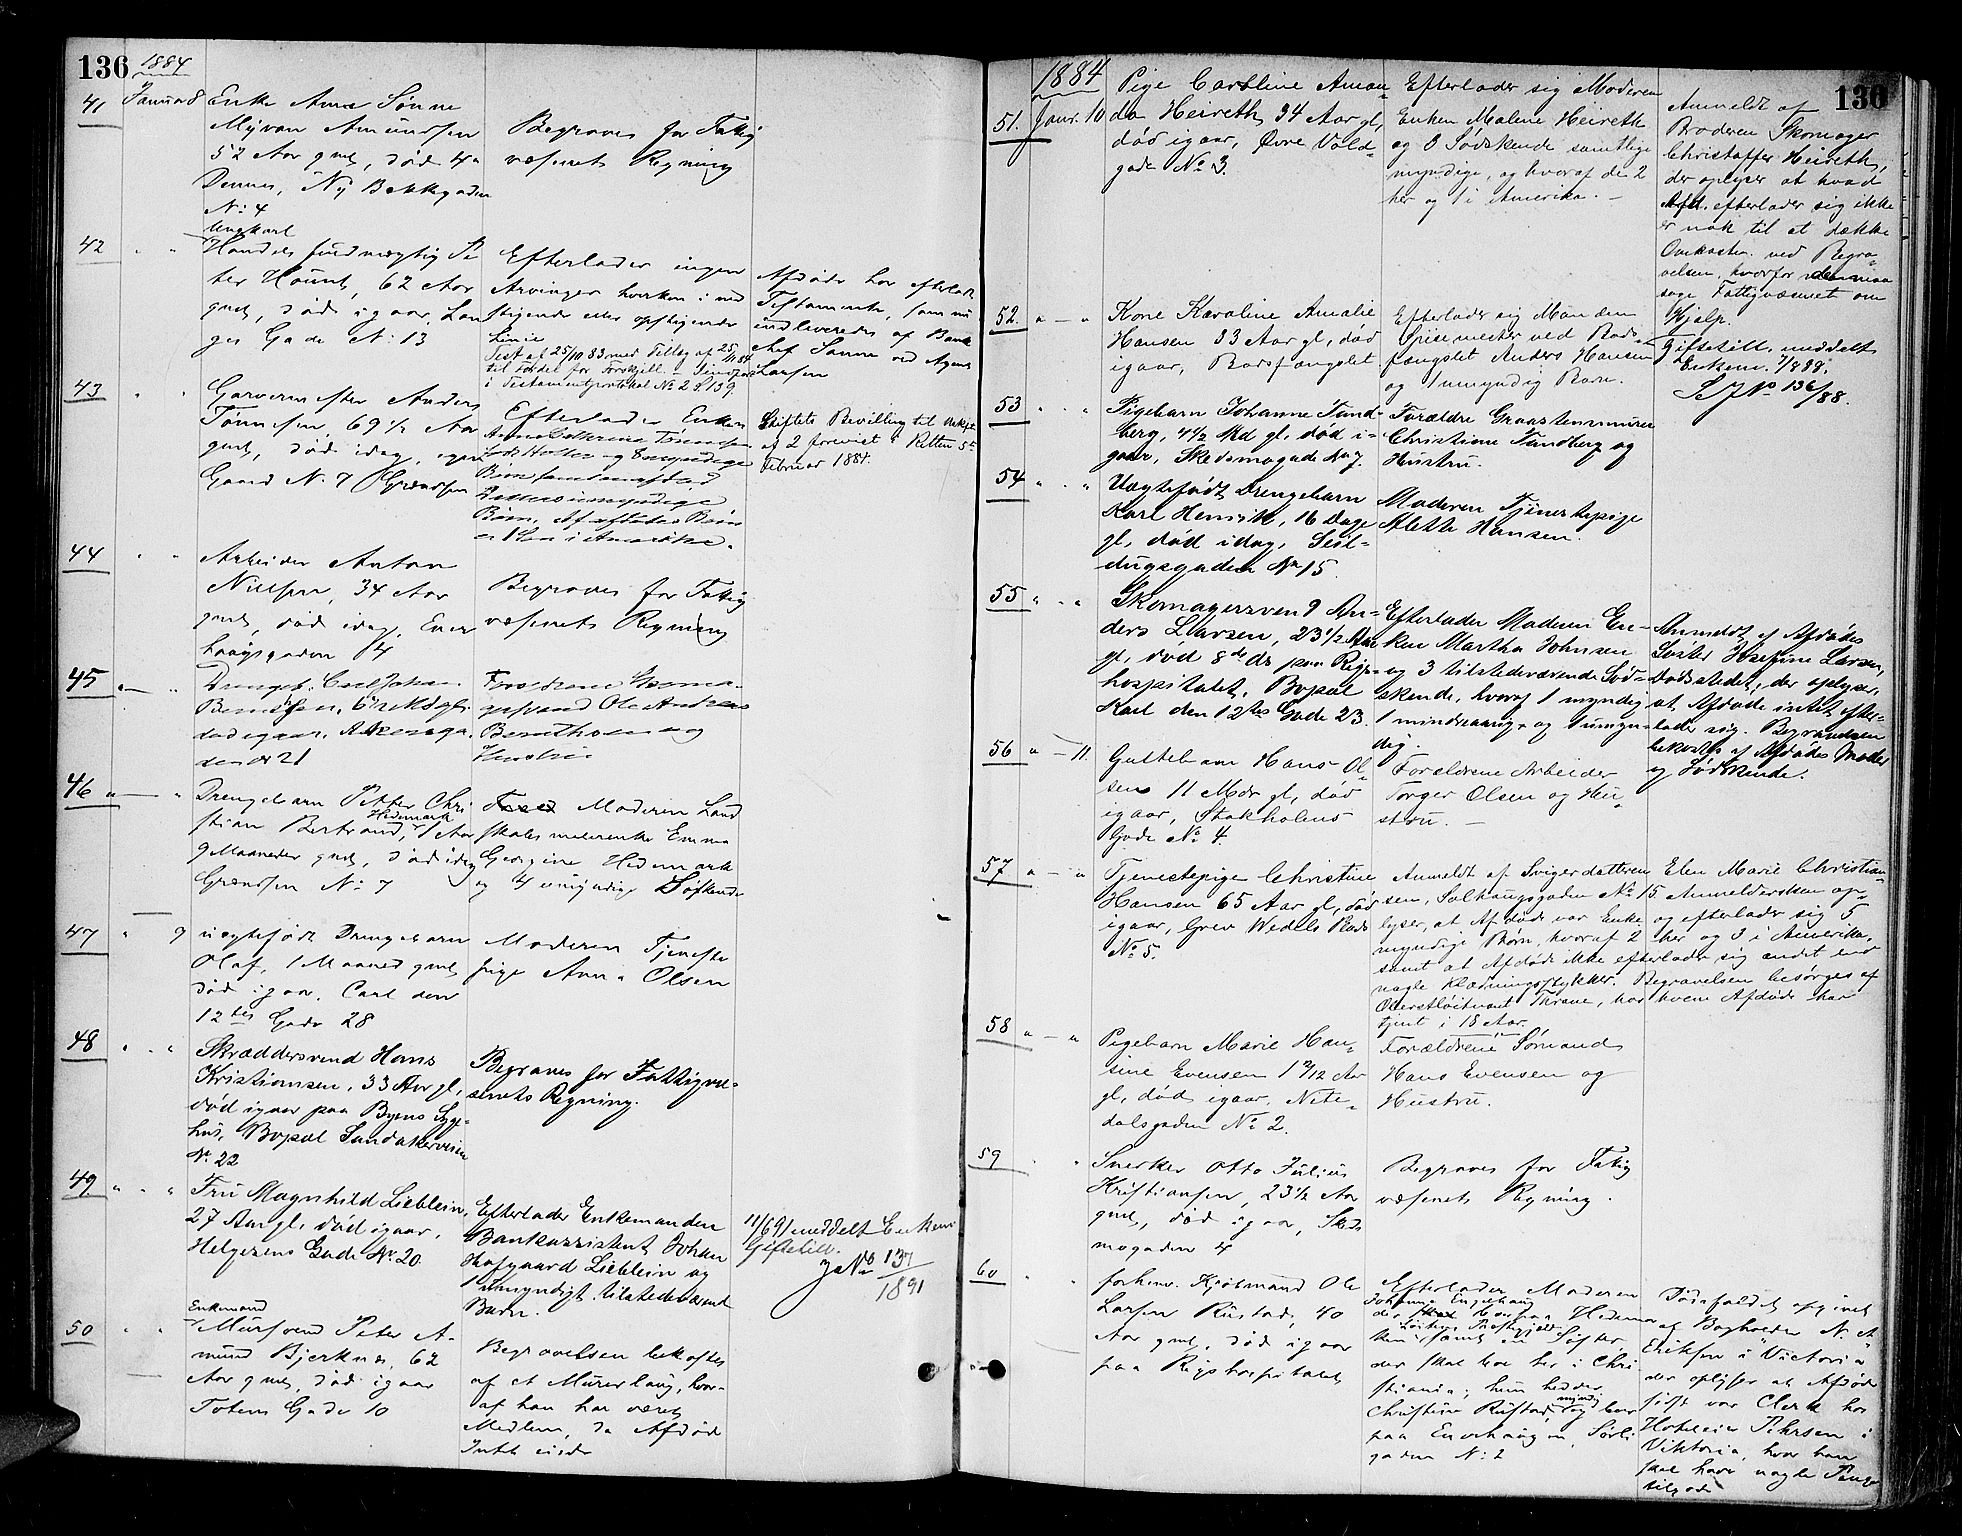 136
1884
41 Januar 8 Enke Anne Sonne
Myran Amundsen
52 Aar gml, død 4a
Dennes, Ny Bakkegaden
No 4
Begraves for Fattig
væsenets Regning
42 " "
Ungkarl
Handelsfuldmægtig Pe
ter Hount, 62 Aar
gml, død igaar, Lan
ges Gade No 13
Efterlader ingen
Arvinger hverken i ned
stigende eller opstigende
Linie
Test af 25/10 83 med Tillæg af 25/11 84
i Testamentprotokol No 2 P 139.
Afdøde har efterladt
Testamente, som nu
indleveredes af Bank
chef Sanne ved Agent
Larsen
43 " "
Garvermester Anders
Tønnesen, 69 1/2 Aar
gml, død idag, egen
Gaard No 7 Grændsen
Efterlader Enken
Anne Cathrine Tønnesen
født Holter og 8 myndige
Børn samt en afdød
Datters umyndige
Børn. Af afdødes Børn
er 1 Søn i Amerika.
Stiftets Bevilling til Uskifte
af 2 forevist i Retten 5te
Februar 1884.
44 " "
Arbeider Anton
Nielsen, 34 Aar
gml, død idag, Ener
haugsgaden 4
Begraves for Fattig
væsenets Regning
45 " — "
Drengeb. Carl Johan
Berntsen, 6 1/2 Md gl.
død igaar, Akersga
den No 21
Forældrene Garma
gersvend Ole Andreas
Bernthsen og
Hustru
46 " — "
Drengebarn Petter Chri
stian Bertrand Hedemark, 1 Aar
9 Maaneder gml, død idag
Grændsen No 7
Moderen Land
skabsmalerenke Emma
Georgine Hedemark
og 4 umyndige Søskende
47 " 9
uægtefødt Drengebarn
Olaf, 1 Maaned gml,
død igaar, Carl den
12tes Gade 28
Moderen Tjeneste
pige Anna Olsen
48 " "
Skræddersvend Hans
Kristiansen, 33 Aar gl,
død igaar paa Byens Syge-
hus, Bopæl Sandakerveien
No 22
Begraves for Fattigvæ-
senets Regning.
49 " " "
Fru Magnhild Lieblein,
27 Aar gl. død igaar,
Helgesens Gade No 20.
Efterlader Enkemanden
Bankassistent Johan
Hofgaard Lieblein og
1 umyndigt tilstedeværende
Barn.
11/6 91 meddelt Enkem
Giftetill.
J No 137/1891
50 " "
Enkemand
Mursvend Peter A-
mund Bjerknes, 62
Aar gml, død igaar
Totens Gade 10
Begravelsen bekostes
af et Murerlaug, hvor-
af han har været
Medlem, da Afdøde
Intet eiede
130
1884
51. Janr. 10
Pige Caroline Aman-
da Heireth, 34 Aar gl,
død igaar, Øvre Vold-
gade No 3.
Efterlader sig Moderen
Enken Malene Heireth
og 3 Sødskende samtlige
myndige, og hvoraf de 2
her og 1 i Amerika. —
Anmeldt af
Broderen Skomager
Christoffer Heireth,
der oplyser at hvad
Afd. efterlader sig ikke
er nok til at dække
Omkostn. ved Begra-
velsen, hvorfor denne maa
søge Fattigvæsenet om
Hjælp.
52. " — "
Kone Karoline Amalie
Hansen 33 Aar gl, død
igaar, Bodsfængslet
Efterlader sig Manden
Spisemester ved Bods-
fængslet Anders Hansen
og 1 umyndig Barn.
Giftetill. meddelt
Enkem. 7/9 88.
Se J No 136/88.
53 " "
Pigebarn Johanne Sund-
berg, 4 1/2 Md gl, død i-
gaar, Skedsmogade No 7.
Forældre Graastensmurer
Christiane Sundberg og
Hustru.
54 " "
Uægtefødt Drengebarn
Karl Henrik, 16 Dage
gl, død idag, Seil-
dugsgaden No 15.
Moderen Tjenestepige
Alette Hansen.
55 " "
Skomagersvend An-
ders Larsen, 23 1/2 Aar
gl, død 8de ds paa Rigs-
hospitalet, Bopæl
Karl den 12tes Gade 23.
Efterlader Moderen En-
ken Martha Johnsen
og 3 tilstedeværende Sød-
skende, hvoraf 1 myndig
1 mindreaarig og 1 umyn-
dig.
Anmeldt af Afdødes
Søster Josefine Larsen,
Dødsstedet, der oplyser,
at Afdøde intet efter-
lader sig. Begravelsen
bekostes af Afdødes Moder
og Sødskende.
56 " — 11.
Guttebarn Hans Ol-
sen 11 Mdr gl, død
igaar, Stokholms
Gade No 4.
Forældrene Arbeider
Torger Olsen og Hu-
stru. —
57 " — "
Tjenestepige Christine
Hansen 65 Aar gl, død
igaar, Grev Wedels Plads
No 5.
Anmeldt af Svigerdatteren Elen Marie Christian-
sen, Solhaugsgaden No 15. Anmeldersken op-
lyser, at Afdøde var Enke og efterlader sig 5
myndige Børn, hvoraf 2 her og 3 i Amerika,
samt at Afdøde ikke efterlader sig andet end
nogle Klædningsstykker. Begravelsen besørges af
Oberstløitnant Thrane, hos hvem Afdøde har
tjent i 18 Aar.
58 " — "
Pigebarn Marie Han-
sine Evensen 1 9/12 Aar
gl, død igaar, Nite-
dalsgaden No 2.
Forældrene Sømand
Hans Evensen og
Hustru.
59 "
Snedker Otto Julius
Kristiansen, 23 1/2 Aar
gml, død igaar, Skeds
mogaden 4
Begraves for Fattig
væsenets Regning.
60 " "
forhenv. Kjøbmand Ole
Larsen Rustad, 40
Aar gml, død igaar
paa Rigshospitalet
Efterlader Moderen
Johanne Engehaug
der bor paa Hedemar
Løitens Præstegjæld
ken samt en Søster
der skal bo her i Chri
stiania; hun hedder
Christine Rustad, myndig og bor
paa Enerhaugen, Sørli
gaden No 2
Dødsfaldet opgivet
af Bogholder N. A.
Eriksen i Victoria
der oplyser at Afdøde
sidst var Clerk hos
Hoteleier Pehrsen i
Viktoria, hvor han
skal have nogle Penge
tilgode